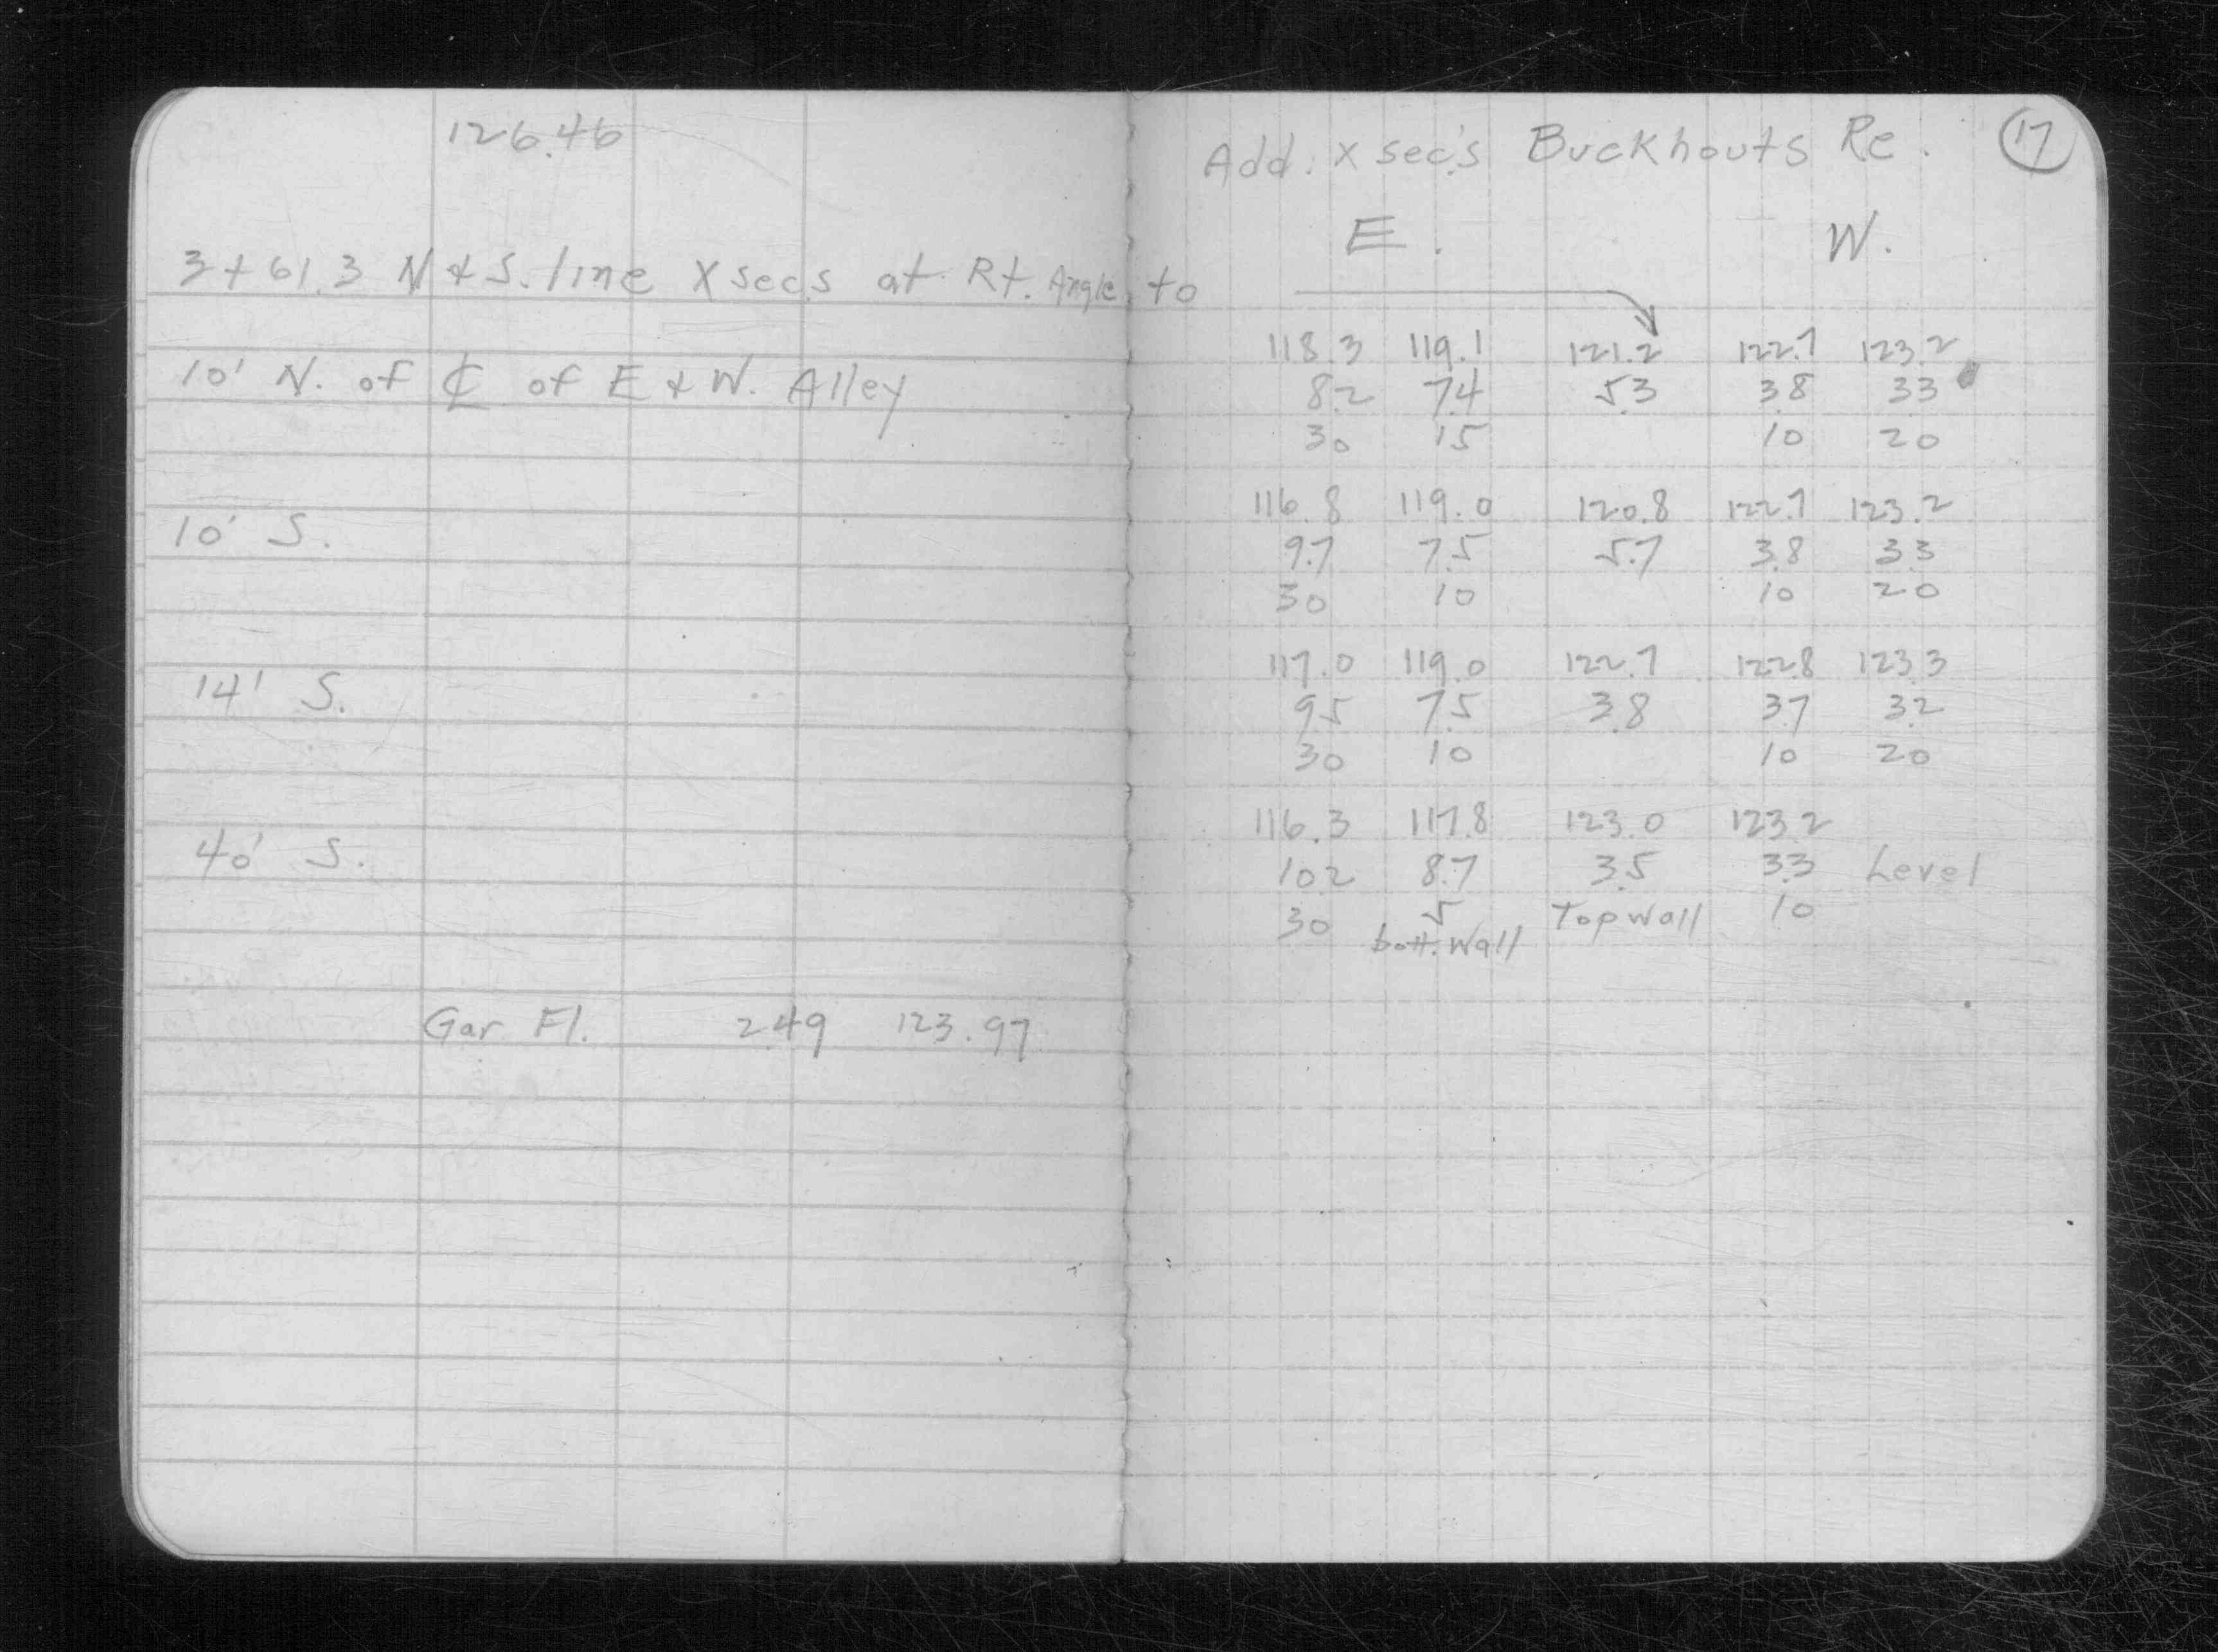 126.46
3+61.3 N & S. line X secs at Rt. Angle to
10' N. of ℄ of E & W. Alley
10' S.
14' S.
40' S.
Gar Fl. 2.49 123.97
Add. x sec's Buckhouts Re. 17
E. W.
118.3 119.1 121.2 122.7 123.2
8.2 7.4 5.3 3.8 3.3
30 15 10 20
116.8 119.0 120.8 122.7 123.2
9.7 7.5 5.7 3.8 3.3
30 10 10 20
117.0 119.0 122.7 122.8 123.3
9.5 7.5 3.8 3.7 3.2
30 10 10 20
116.3 117.8 123.0 123.2
10.2 8.7 3.5 3.3 Level
30 5 Top Wall 10
bott. Wall